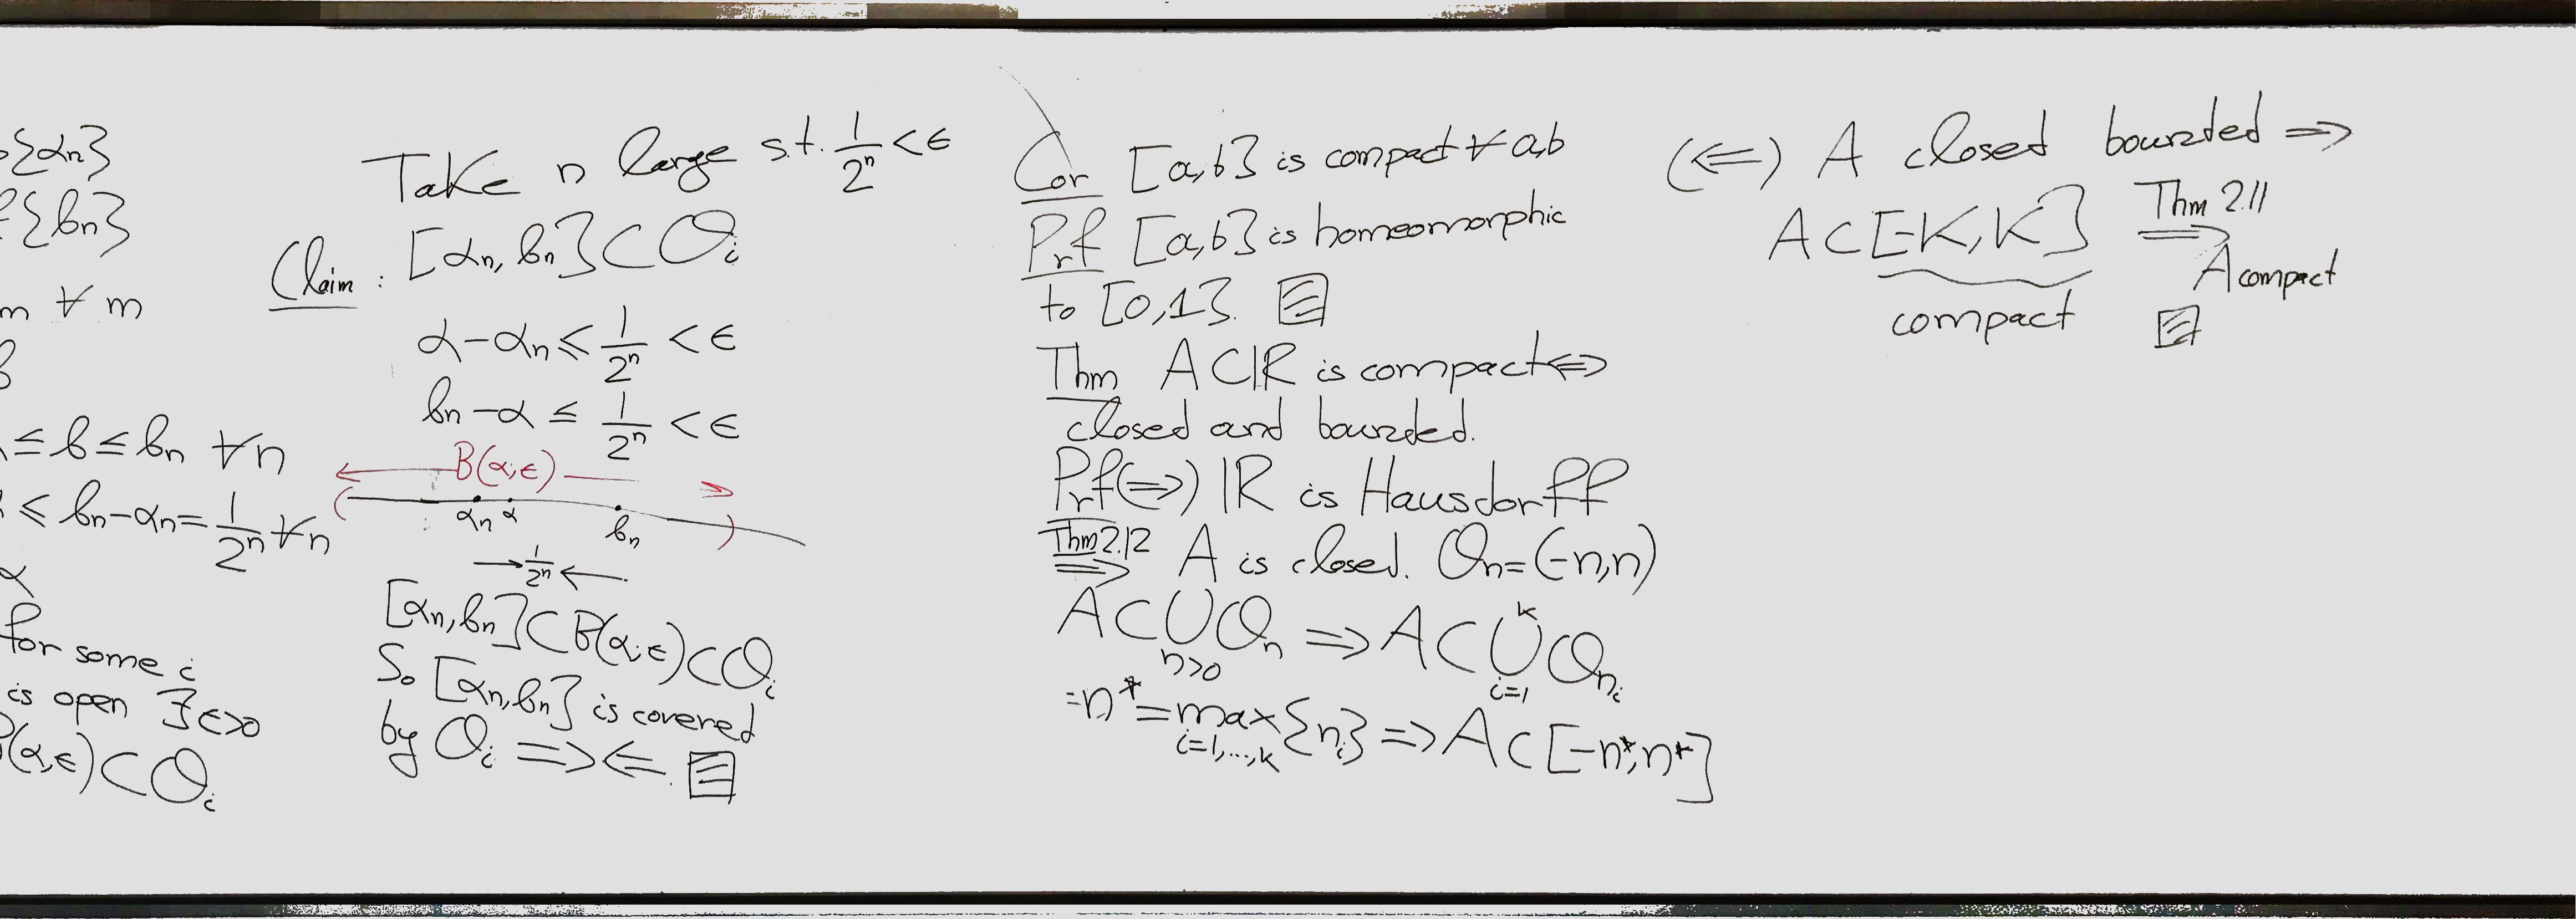 {αn}
{bn}
m ∀ m
≤ b ≤ bn ∀n
≤ bn-αn = 1/2^n ∀n
α
for some i
is open ∃ ε>0
(α,ε) ⊂ O_i
Take n large s.t. 1/2^n < ε
Claim: [αn, bn] ⊂ O_i
α-αn ≤ 1/2^n < ε
bn-α ≤ 1/2^n < ε
B(α,ε)
αn α bn
→ 1/2^n ←
[αn, bn] ⊂ B(α,ε) ⊂ O_i
So [αn, bn] is covered
by O_i ⇒⇐
Cor [a,b] is compact ∀ a,b
Prf [a,b] is homeomorphic
to [0,1].
Thm A ⊂ ℝ is compact ⇔
closed and bounded.
Prf (⇒) ℝ is Hausdorff
Thm 2.12 ⇒ A is closed. O_n = (-n,n)
A ⊂ ∪_{n>0} O_n ⇒ A ⊂ ∪_{i=1}^k O_{n_i}
=n* = max_{i=1,...,k} {n_i} ⇒ A ⊂ [-n*,n*]
(⇐) A closed bounded ⇒
A ⊂ [-K,K] Thm 2.11 ⇒
A compact
compact